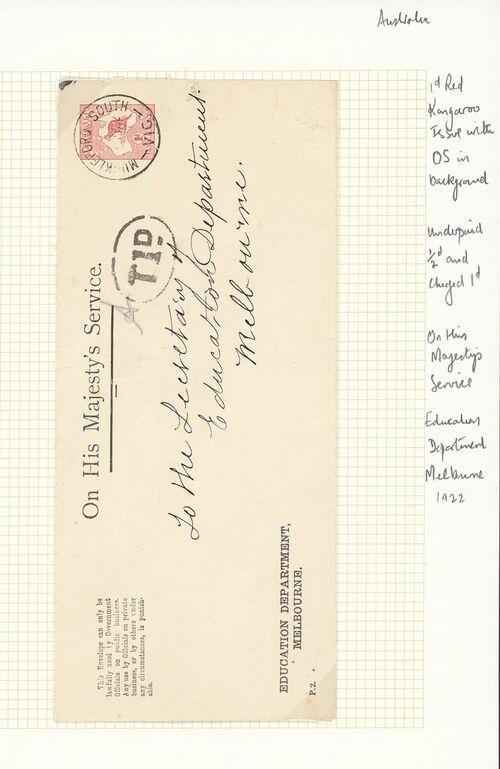 Australia
1d Red
Kangaroo
Issue with
OS in
background
underpaid
½d and
charged 1d
On His
Majestys
Service
Education
Department
Melbourne
1922
SOUTH
VIC
T1D
On His Majesty's Service.
To the Secretary
Education Department.
Melbourne.
This Envelope can only be
lawfully used by Government
Officials on public business.
Any use by Officials on private
business, or by others under
any circumstances, is punish-
able.
EDUCATION DEPARTMENT,
MELBOURNE.
P.2.